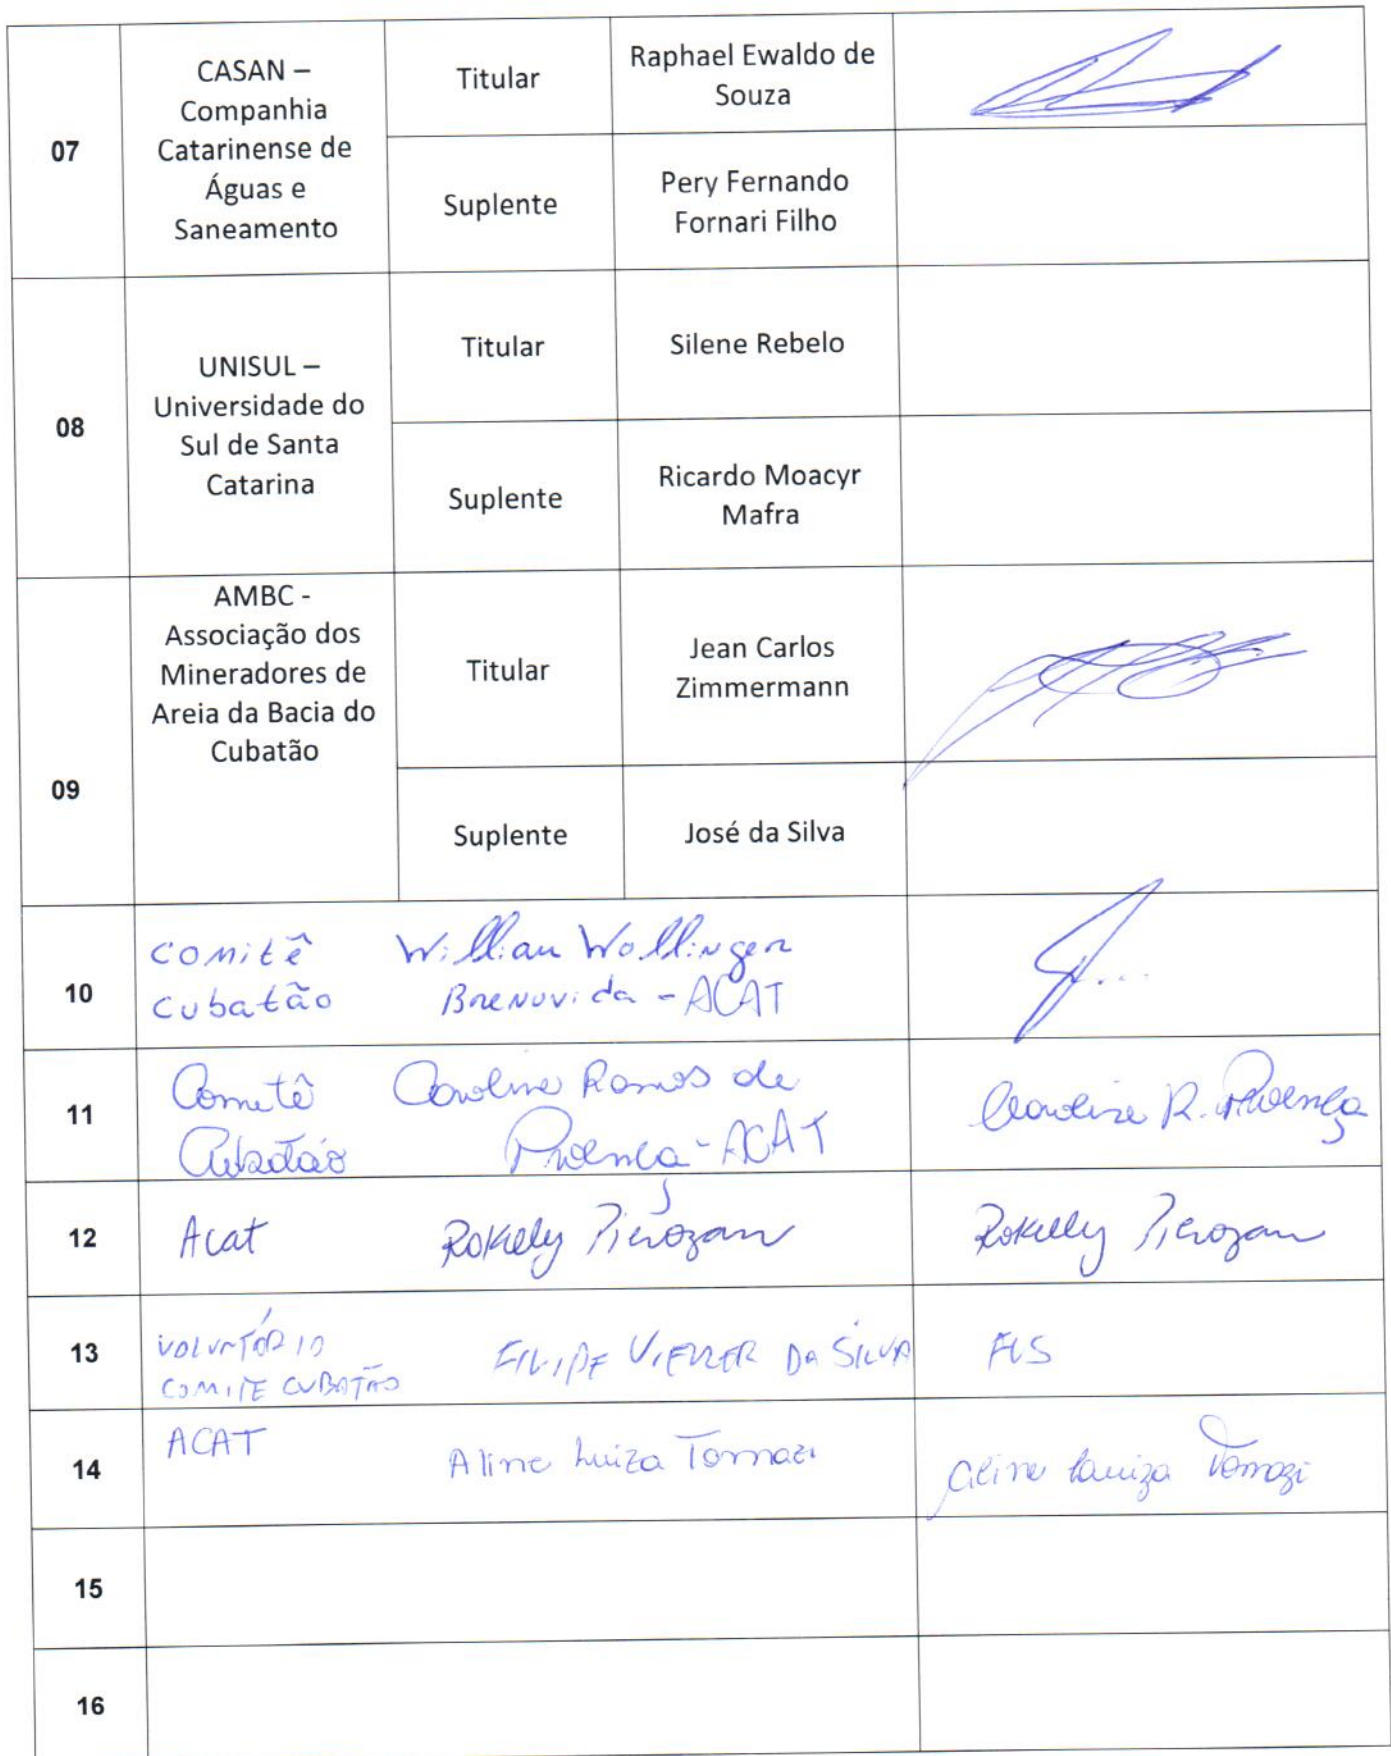 07
CASAN –
Companhia
Catarinense de
Águas e
Saneamento
Titular
Raphael Ewaldo de
Souza
Suplente
Pery Fernando
Fornari Filho
08
UNISUL –
Universidade do
Sul de Santa
Catarina
Titular
Silene Rebelo
Suplente
Ricardo Moacyr
Mafra
09
AMBC -
Associação dos
Mineradores de
Areia da Bacia do
Cubatão
Titular
Jean Carlos
Zimmermann
Suplente
José da Silva
10
comitê
cubatão
Willian Wollinger
- ACAT
11
Comitê
Cubatão
Caroline Ramos de
Proença - ACAT
Caroline R. Proença
12
Acat
Rokelly Pierozan
Rokelly Pierozan
13
VOLUNTÁRIO
COMITE CUBATÃO
FILIPE DA SILVA
14
ACAT
Aline Luiza Tomazi
Aline Luiza Tomazi
15
16